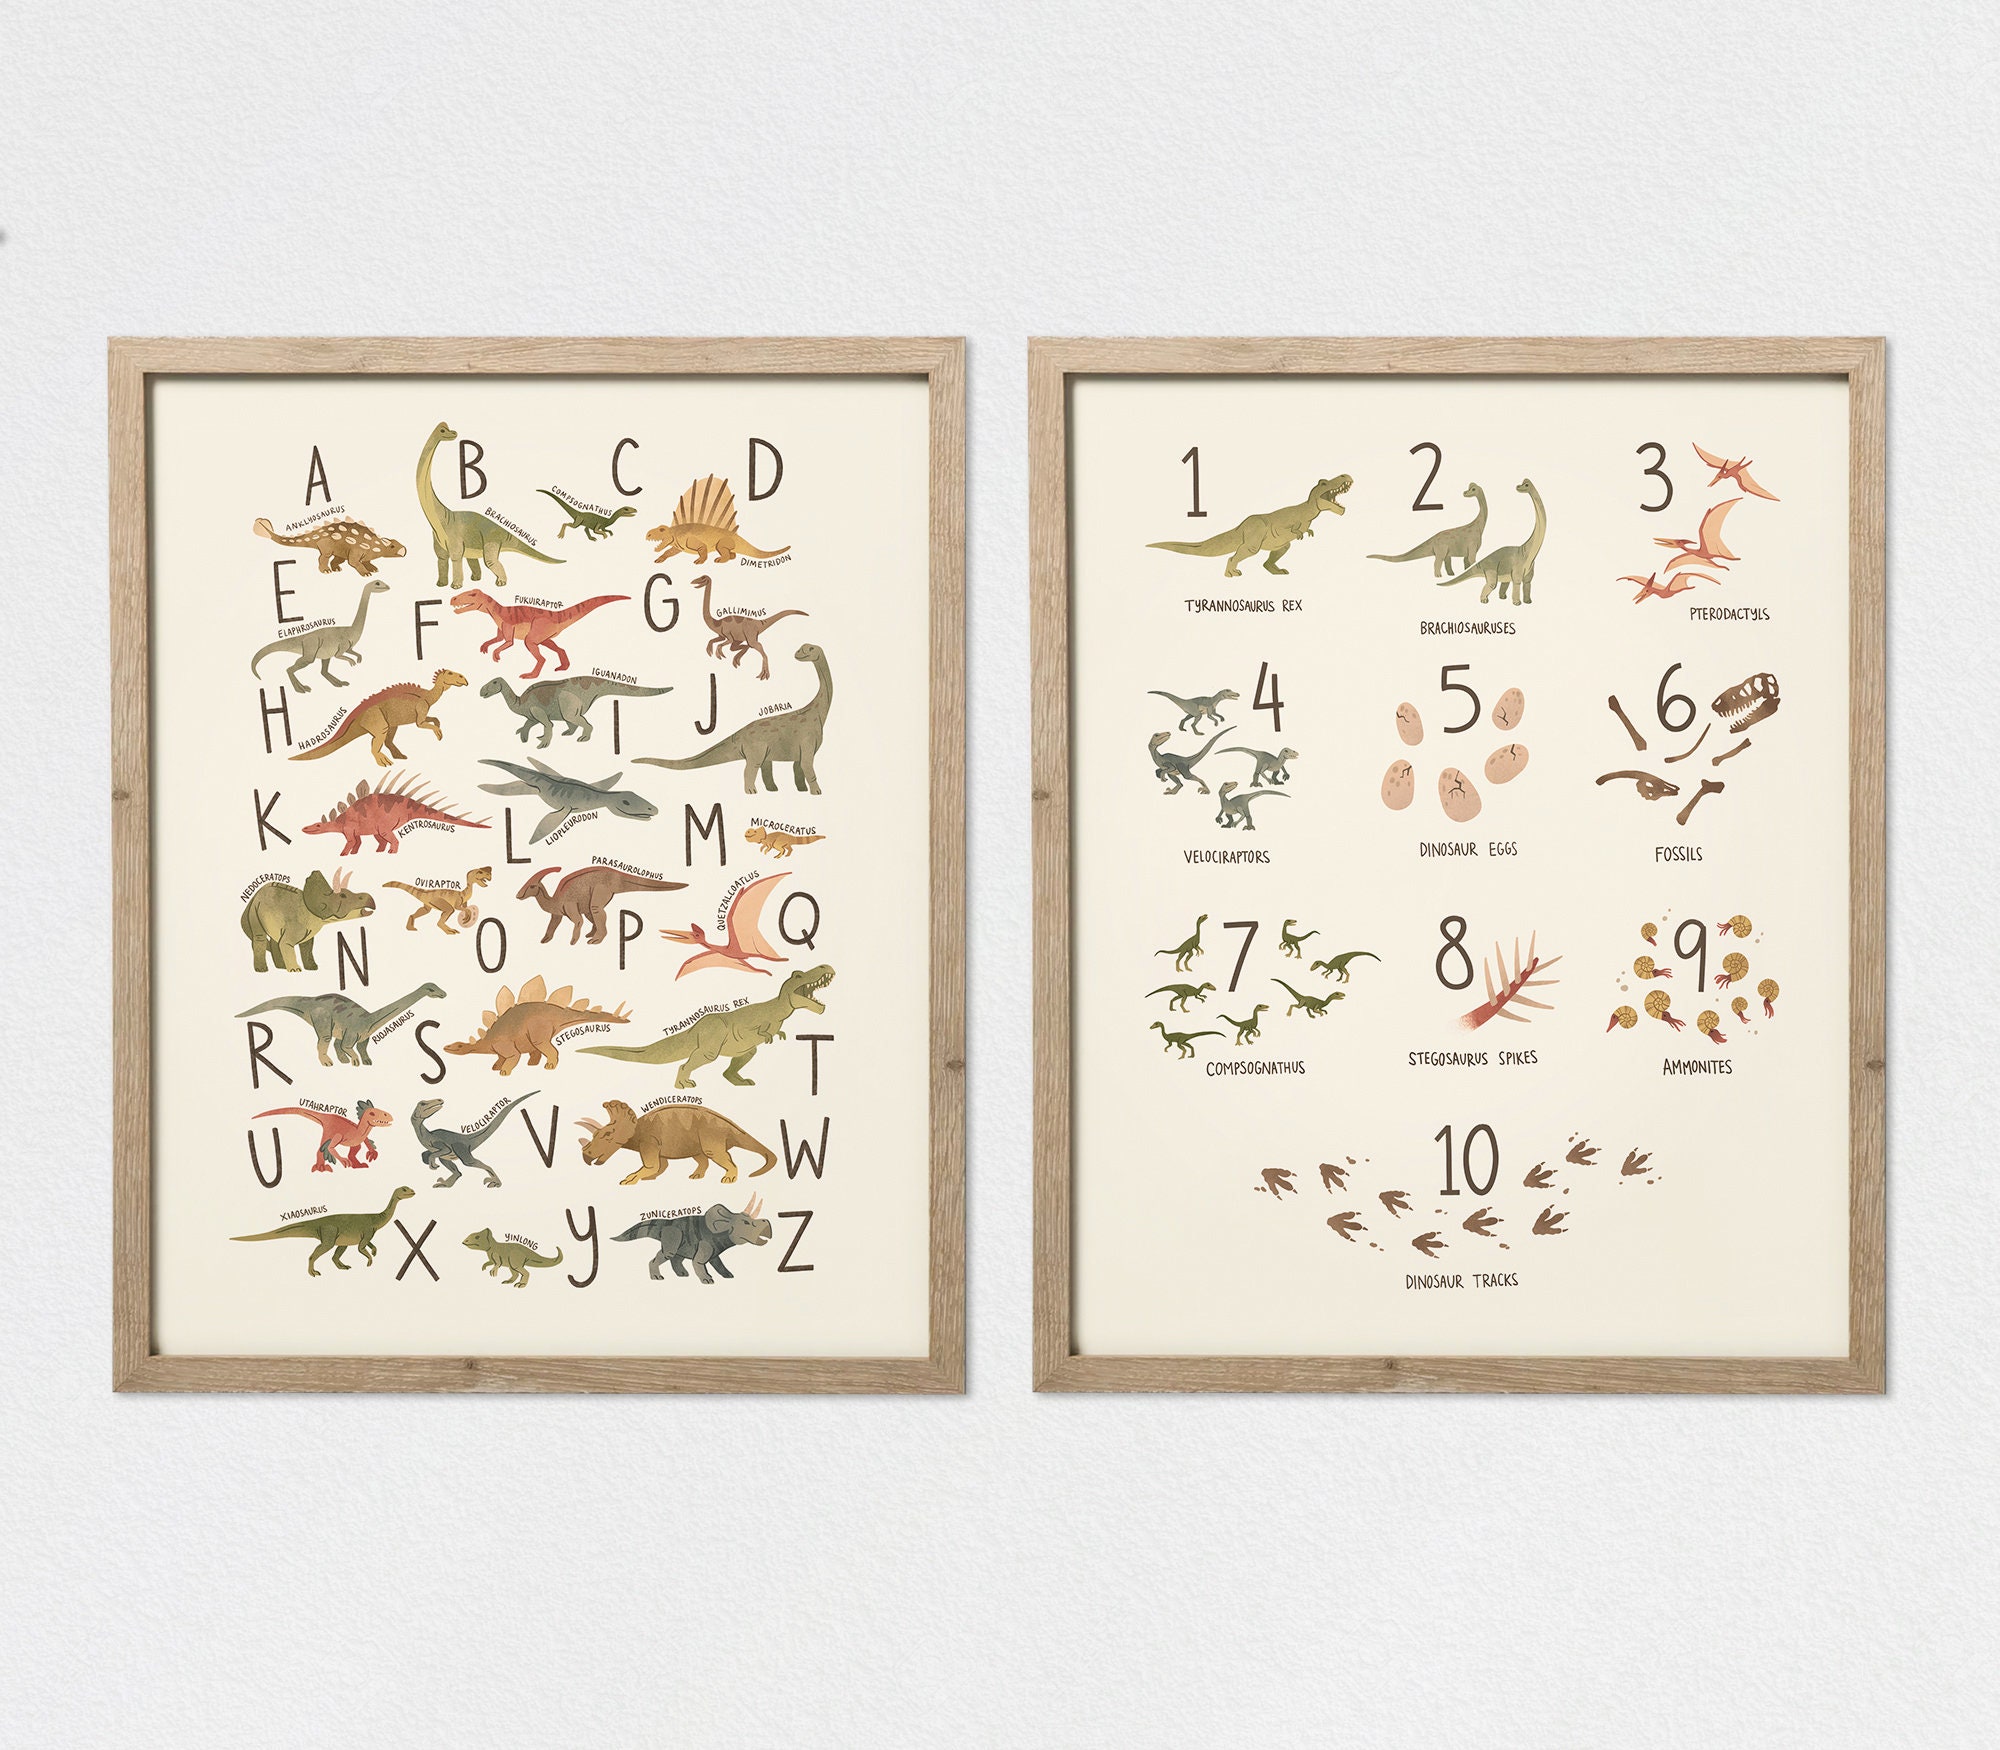 A
ANKLYOSAURUS
B
BRACHIOSAURUS
C
COMPSOGNATHUS
D
DIMETRIDON
E
ELAPHROSAURUS
F
FUKUIRAPTOR
G
GALLIMIMUS
H
HADROSAURUS
I
IGUANADON
J
JOBARIA
K
KENTROSAURUS
L
LIOPLEURODON
M
MICROCERATUS
N
NEDOCERATOPS
O
OVIRAPTOR
P
PARASAUROLOPHUS
Q
QUETZALCOATLUS
R
RIOJASAURUS
S
STEGOSAURUS
T
TYRANNOSAURUS REX
U
UTAHRAPTOR
V
VELOCIRAPTOR
W
WENDICERATOPS
X
XIAOSAURUS
Y
YINLONG
Z
ZUNICERATOPS
1
TYRANNOSAURUS REX
2
BRACHIOSAURUSES
3
PTERODACTYLS
4
VELOCIRAPTORS
5
DINOSAUR EGGS
6
FOSSILS
7
COMPSOGNATHUS
8
STEGOSAURUS SPIKES
9
AMMONITES
10
DINOSAUR TRACKS